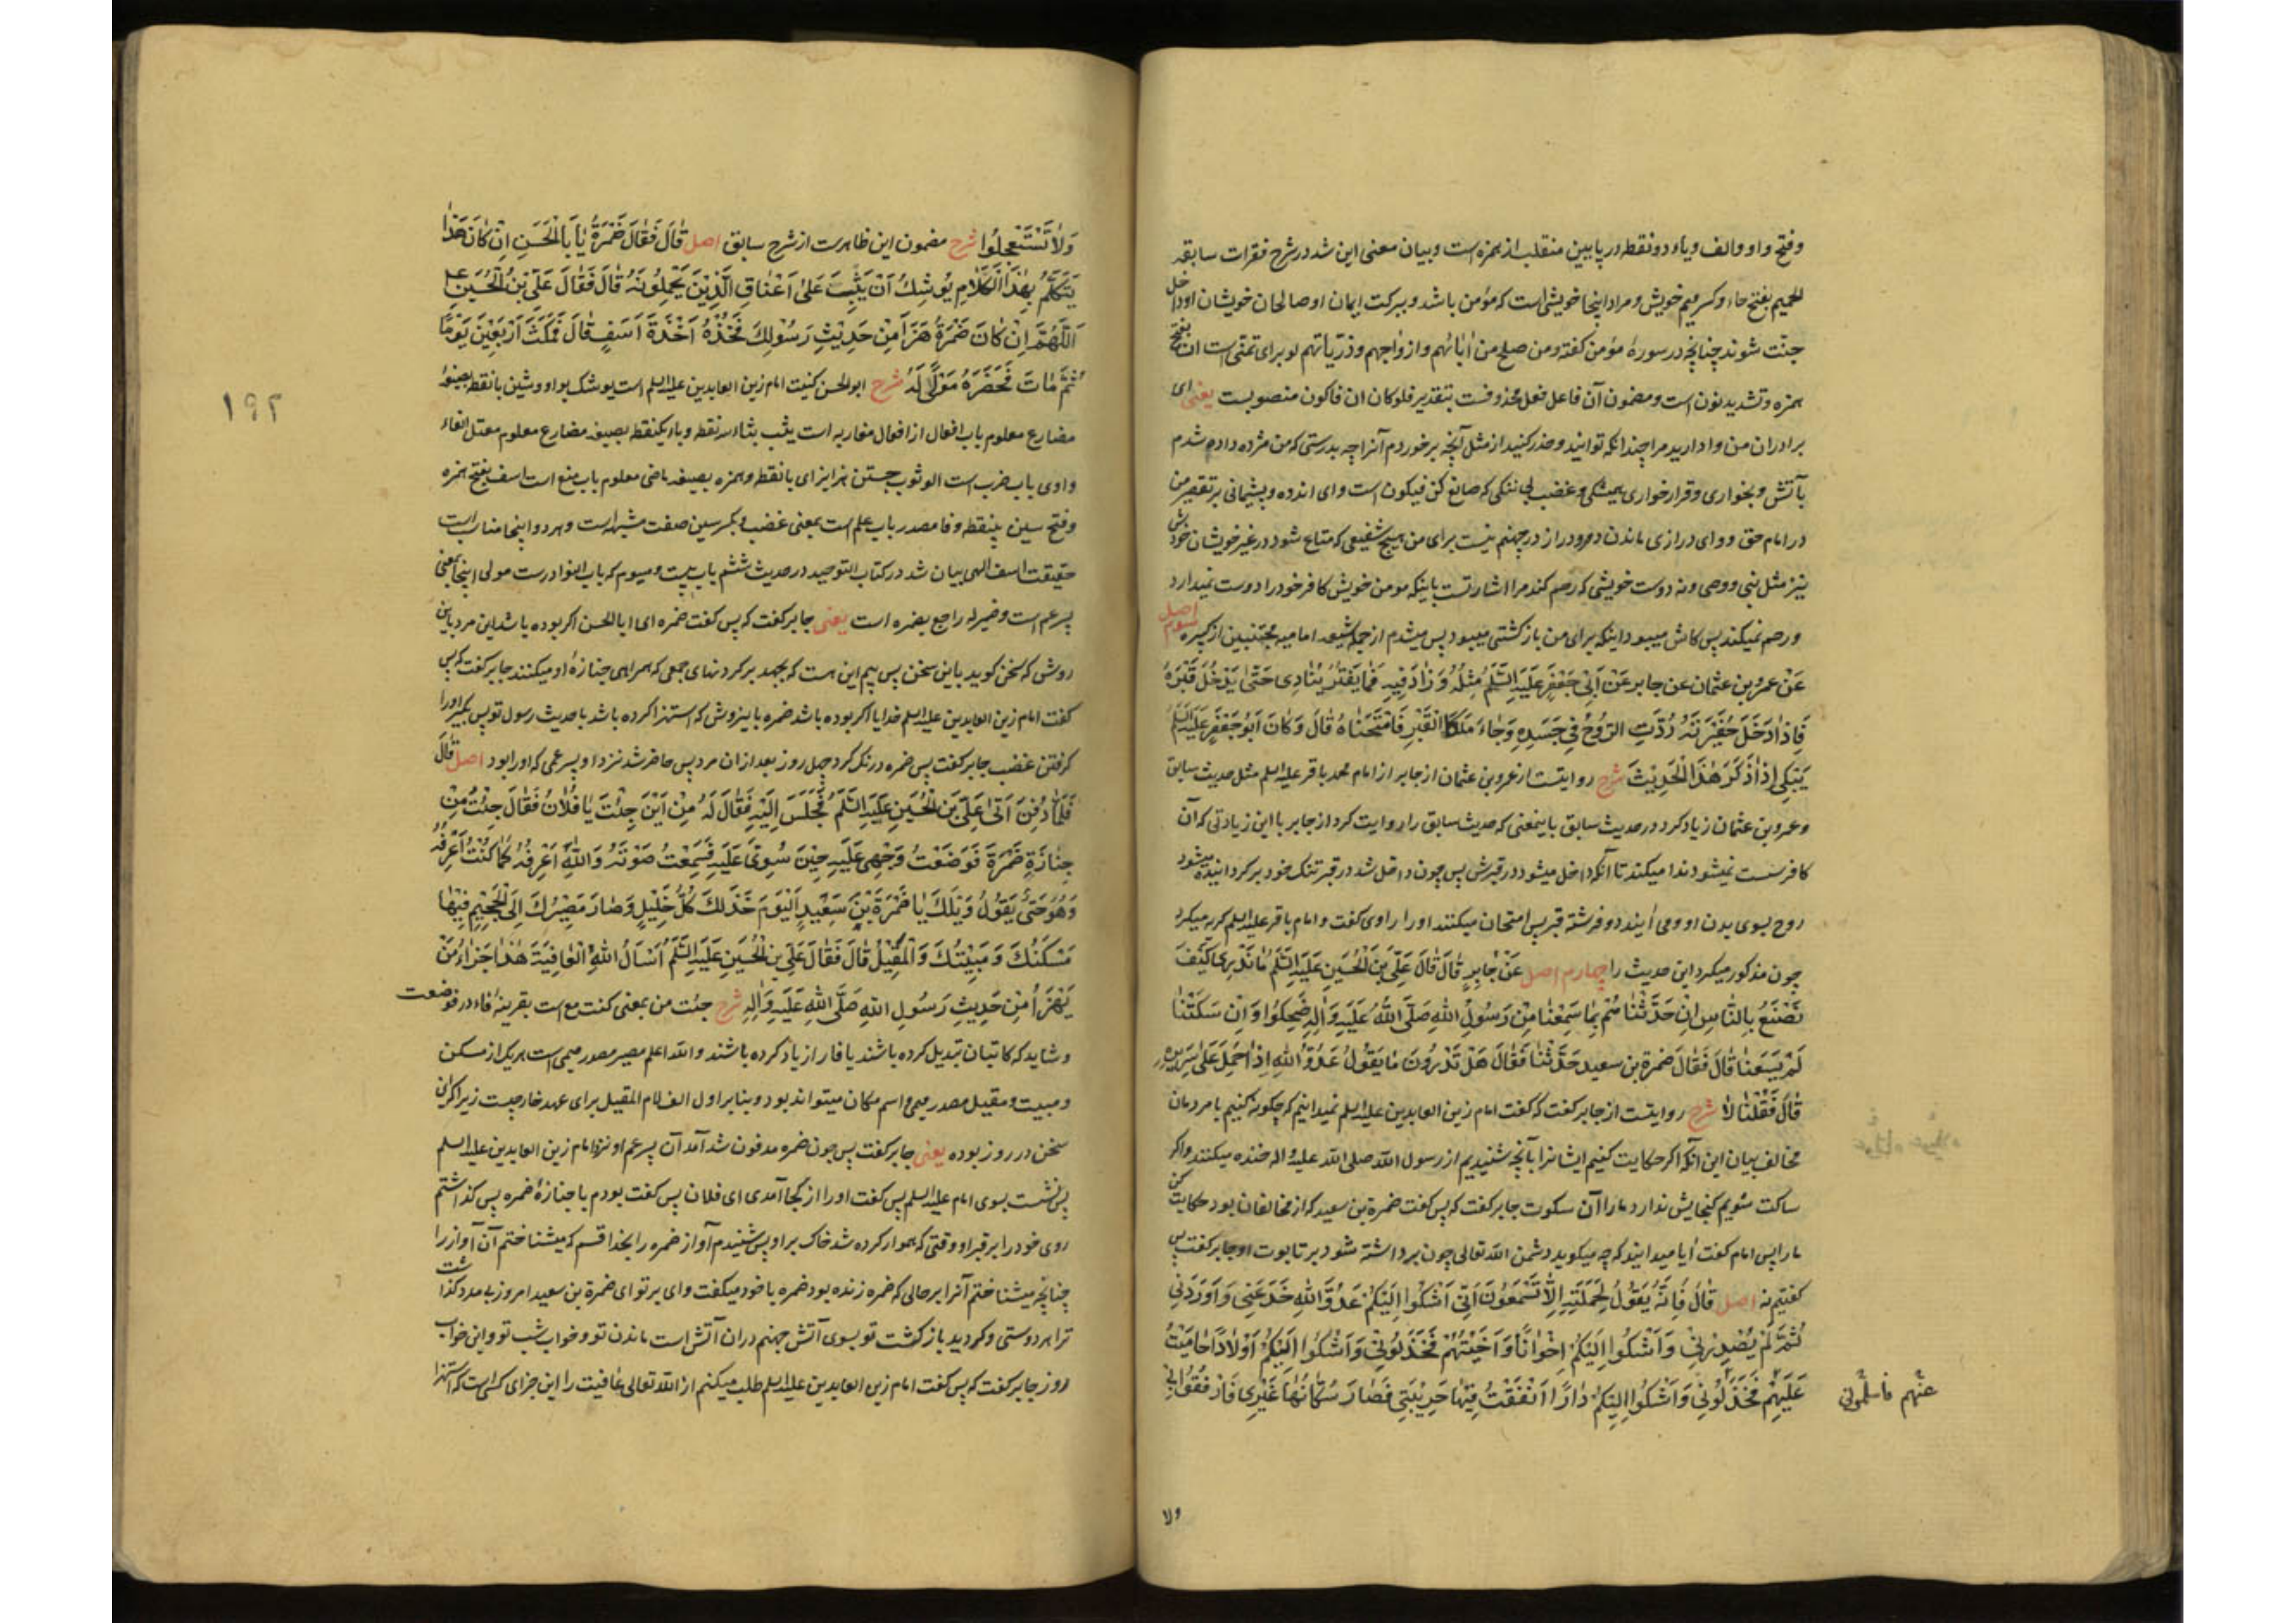 وفتح واو والف ویاء دو نقطه در پایین منقلب از همزه است و بیان معنی این شد در شرح فقرات سابقه
الحمیم بفتح حاء و کسر میم خویش و مراد اینجا خویشی است که مؤمن باشد و ببرکت ایمان او صالحان خویشان او داخل
جنّت شوند چنانچه در سورهٔ مؤمن گفته ومن صلح من اٰبائهم وازواجهم وذرّیاتهم لو برای تمنّی است ان بفتح
همزه وتشدید نون است و مضمون آن فاعل فعل محذوفست بتقدیر فلو کان ان فاکون منصوبست یعنی ای
برادران من وادارید مرا چندانکه توانید و حذر کنید از مثل آنچه برخوردم آنرا چه بدرستی که من مژده داده شدم
بآتش و بخواری و قرار خواری همیشگی و غضب بی ننگی که صانع کن فیکون است وای اندوه و پشیمانی بر تقصیر من
در امام حق و وای درازی ماندن دور و دراز در جهنم نیست برای من هیچ شفیعی که متاع شود در غیر خویشان خودش
نیز مثل نبی ووصی ونه دوست خویشی که رحم کند مرا اشارتست باینکه مومن خویش کافر خود را دوست نمیدارد
ورحم نمیکند پس کاش میبود اینکه برای من بازگشتی میبود پس میشدم از جمله شیعه امامیه مجتنبین از کبیره سیوم اصل
عَنْ عمرو بن عثمان عن جابر عَنْ اَبِي جَعْفَرٍ عَلَيْهِ السَّلَمُ مِثْلَهُ وَزَادَ فِيهِ فَمَا يَفْتُرُ يُنَادِي حَتّٰى يَدْخُلَ قَبْرَهُ
فَاِذَا دَخَلَ حُفْرَتَهُ رُدَّتِ الرُّوحُ فِي جَسَدِهِ وَجَاءَ مَلَكَا الْقَبْرِ فَامْتَحَنَاهُ قَالَ وَكَانَ اَبُو جَعْفَرٍ عَلَيْهِ السَّلَمُ
يَبْكِي اِذَا ذَكَرَ هٰذَا الْحَدِيْثَ شرح روایتست از عمرو بن عثمان از جابر از امام محمد باقر علیه السلم مثل حدیث سابق
وعمرو بن عثمان زیاد کرد در حدیث سابق باینمعنی که حدیث سابق را روایت کرد از جابر با این زیادتی که آن
کافر سست نمیشود ندا میکند تا آنکه داخل میشود در قبرش پس چون داخل شد در قبر تنک خود برگردانیده میشود
روح بسوی بدن او و می آیند دو فرشته قبر پس امتحان میکنند او را راوی گفت و امام باقر علیه السلم گریه میکرد
چون مذکور میکرد این حدیث را چهارم اصل عَنْ جَابِرٍ قَالَ قَالَ عَلِيُّ بْنُ الْحُسَيْنِ عَلَيْهِ السَّلَمُ مَا نَدْرِي كَيْفَ
نَصْنَعُ بِالنَّاسِ اِنْ حَدَّثْنَاهُمْ بِمَا سَمِعْنَا مِنْ رَسُولِ اللّٰهِ صَلَّى اللّٰهُ عَلَيْهِ وَاٰلِهِ ضَحِكُوا وَاِنْ سَكَتْنَا
لَمْ يَسَعْنَا قَالَ فَقَالَ ضمرة بن سعید حَدِّثْنَا فَقَالَ هَلْ تَدْرُونَ مَا يَقُولُ عَدُوُّ اللّٰهِ اِذَا حُمِلَ عَلَى سَرِيْرِهِ
قَالَ فَقُلْنَا لَا شرح روایتست از جابر گفت که گفت امام زین العابدین علیه السلم نمیدانیم که چگونه کنیم با مردمان
مخالف بیان این آنکه اگر حکایت کنیم ایشانرا بآنچه شنیدیم از رسول اللّه صلی اللّه علیه واله خنده میکنند واگر
ساکت شویم گنجایش ندارد ما را آن سکوت جابر گفت که پس گفت ضمرة بن سعید که از مخالفان بود حکایت کن
ما را پس امام گفت آیا میدانید که چه میگوید دشمن اللّه تعالی چون برداشته شود بر تابوت او جابر گفت پس
گفتیم نه اصل قَالَ فَاِنَّهُ يَقُولُ لِحَمَلَتِهِ اَلَا تَسْمَعُونَ اَنِّي اَشْكُوا اِلَيْكُمْ عَدُوَّ اللّٰهِ خَدَعَنِي وَاَوْرَدَنِي
ثُمَّ لَمْ يُصْدِرْنِي وَاَشْكُوا اِلَيْكُمْ اِخْوَانًا وَاَخَيْتُهُمْ فَخَذَلُونِي وَاَشْكُوا اِلَيْكُمْ اَوْلَادًا حَامَيْتُ
عَلَيْهِمْ فَخَذَلُونِي وَاَشْكُوا اِلَيْكُمْ دَارًا اَنْفَقْتُ فِيْهَا حَرِيْبَتِي فَصَارَ سُكَّانُهَا غَيْرِي فَارْفُقُوا بِي
عنهم فاسلمونی
ولا
وَلَا تَسْتَعْجِلُوا شرح مضمون این ظاهرست از شرح سابق اصل قَالَ فَقَالَ ضَمْرَةُ يَا اَبَا الْحَسَنِ اِنْ كَانَ هٰذَا
يَتَكَلَّمُ بِهٰذَا الْكَلَامِ يُوشِكُ اَنْ يَثِبَ عَلَى اَعْنَاقِ الَّذِيْنَ يَحْمِلُونَهُ قَالَ فَقَالَ عَلِيُّ بْنُ الْحُسَيْنِ ع
اَللّٰهُمَّ اِنْ كَانَ ضَمْرَةُ هَزَأَ مِنْ حَدِيْثِ رَسُوْلِكَ فَخُذْهُ اَخْذَةَ اَسَفٍ قَالَ فَمَكَثَ اَرْبَعِيْنَ يَوْمًا
ثُمَّ مَاتَ فَحَضَرَهُ مَوْلًى لَهُ شرح ابوالحسن کنیت امام زین العابدین علیه السلم است یوشک بواو وشین بانقطه بصیغهٔ
مضارع معلوم باب افعال از افعال مقاربه است یثب بثاء سه نقطه وباء یکنقطه بصیغه مضارع معلوم معتل الفاء
واوی باب ضرب است الوثوب جستن هزأ بزای بانقطه وهمزه بصیغه ماضی معلوم باب منع است اسف بفتح همزه
وفتح سین بینقطه وفا مصدر باب علم است بمعنی غضب وبکسر سین صفت مشبهه است وهر دو اینجا مناسب است
حقیقت اسف الهی بیان شد در کتاب التوحید در حدیث ششم باب بیست و سیوم که باب النوادرست مولی اینجا بمعنی
پسر عم است وضمیر له راجع بضمره است یعنی جابر گفت که پس گفت ضمره ای ابا الحسن اگر بوده باشد این مرد باین
روش که سخن گوید باین سخن پس بیم این هست که بجهد بر گردنهای جمعی که همراهی جنازهٔ او میکنند جابر گفت که پس
گفت امام زین العابدین علیه السلم خدایا اگر بوده باشد ضمره باینروش که استهزا کرده باشد با حدیث رسول تو پس بگیر او را
گرفتن غضب جابر گفت پس ضمره درنگ کرد چهل روز بعد از ان مرد پس حاضر شد نزد او پسر عمی که او را بود اصل قَالَ
فَلَمَّا دُفِنَ اَتٰى عَلِيَّ بْنَ الْحُسَيْنِ عَلَيْهِ السَّلَمُ فَجَلَسَ اِلَيْهِ فَقَالَ لَهُ مِنْ اَيْنَ جِئْتَ يَا فُلَانُ فَقَالَ جِئْتُ مِنْ
جِنَازَةِ ضَمْرَةَ فَوَضَعْتُ وَجْهِي عَلَيْهِ حِيْنَ سُوِّيَ عَلَيْهِ فَسَمِعْتُ صَوْتَهُ وَاللّٰهِ اَعْرِفُهُ كَمَا كُنْتُ اَعْرِفُهُ
وَهُوَ حَيٌّ يَقُولُ وَيْلَكَ يَا ضَمْرَةَ بْنَ سَعِيْدٍ اَلْيَوْمَ خَذَلَكَ كُلُّ خَلِيْلٍ وَصَارَ مَصِيْرُكَ اِلَى الْجَحِيْمِ فِيْهَا
مَسْكَنُكَ وَمَبِيْتُكَ وَالْمَقِيْلُ قَالَ فَقَالَ عَلِيُّ بْنُ الْحُسَيْنِ عَلَيْهِ السَّلَمُ اَسْأَلُ اللّٰهَ الْعَافِيَةَ هٰذَا جَزَاءُ مَنْ
يَهْزَأُ مِنْ حَدِيْثِ رَسُوْلِ اللّٰهِ صَلَّى اللّٰهُ عَلَيْهِ وَاٰلِهِ شرح جئت من بمعنی کنت مع است بقرینهٔ فاء در فوضعت
وشاید که کاتبان تبدیل کرده باشند یا فا را زیاد کرده باشند واللّه اعلم مصیر مصدر میمی است هر یک از مسکن
ومبیت ومقیل مصدر میمی واسم مکان میتواند بود و بنابر اول الف لام المقیل برای عهد خارجیست زیرا که این
سخن در روز بوده یعنی جابر گفت پس چون ضمره مدفون شد آمد آن پسر عم او نزد امام زین العابدین علیه السلم
پس نشست بسوی امام علیه السلم پس گفت او را از کجا آمدی ای فلان پس گفت بودم با جنازهٔ ضمره پس گذاشتم
روی خود را بر قبر او وقتی که هموار کرده شد خاک بر او پس شنیدم آواز ضمره را بخدا قسم که میشناختم آن آواز را
چنانچه میشناختم آنرا بر حالی که ضمره زنده بود ضمره با خود میگفت وای بر تو ای ضمرة بن سعید امروز بی مدد گذاشت
ترا هر دوستی وگردید بازگشت تو بسوی آتش جهنم در ان آتش است ماندن تو و خواب شب تو و این خواب
روز جابر گفت که پس گفت امام زین العابدین علیه السلم طلب میکنم از اللّه تعالی عافیت را این جزای کسی است که استهزا
۱۹۲